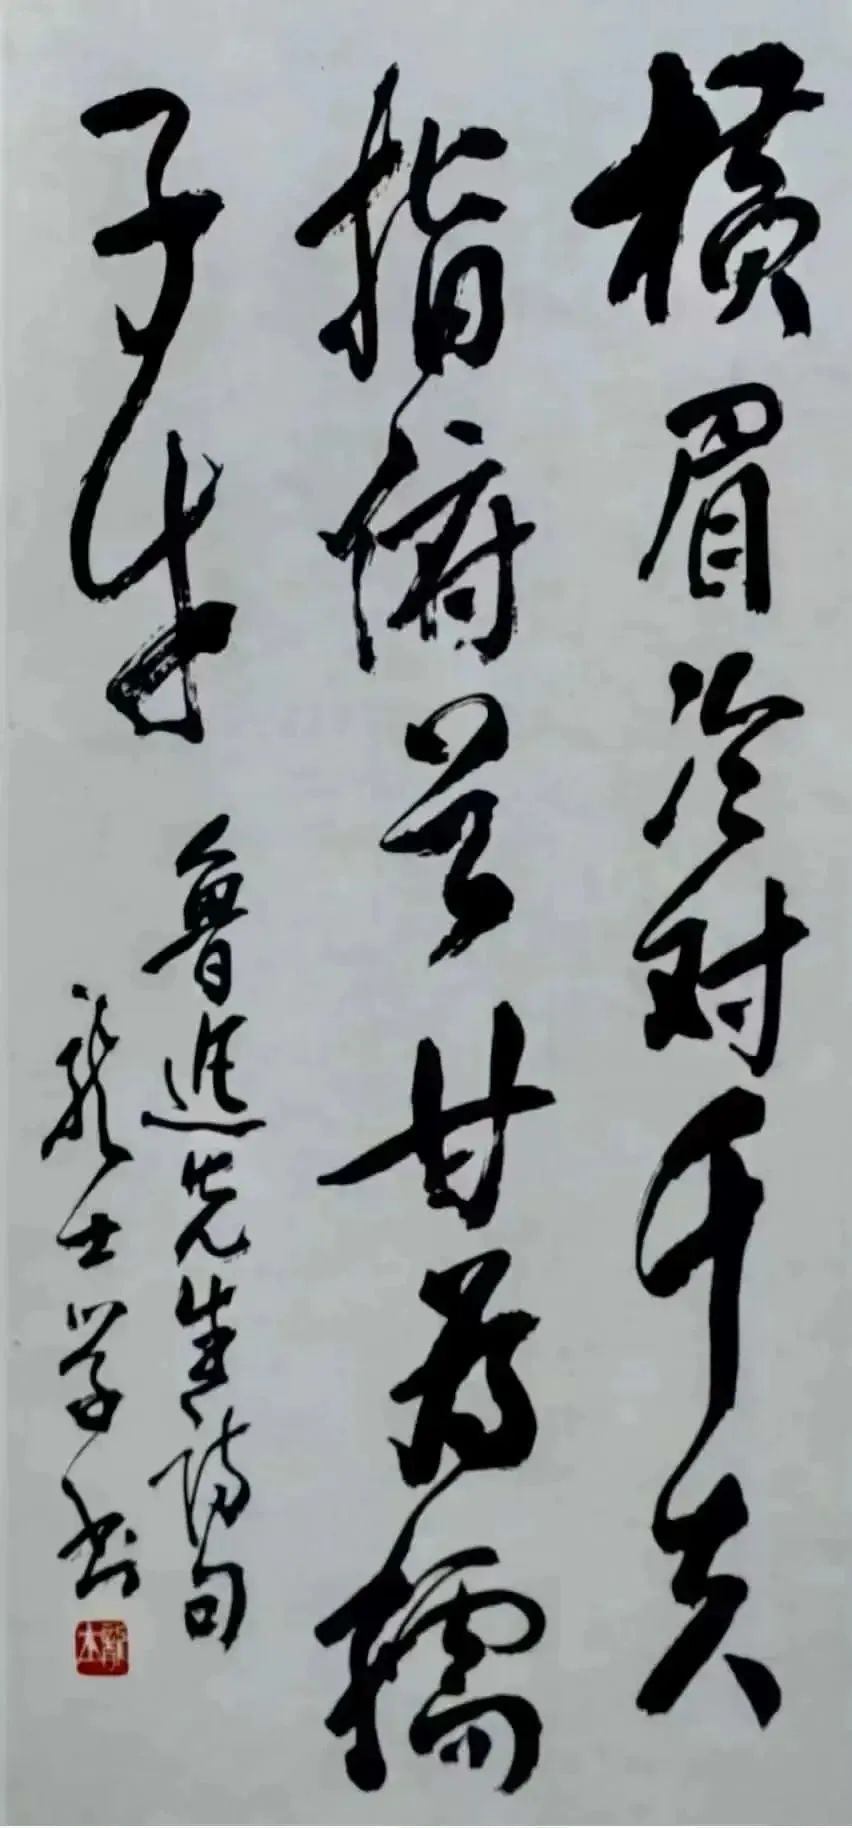 横眉冷对千夫
指俯首甘為孺
子牛
魯迅先生诗句
龙士学书